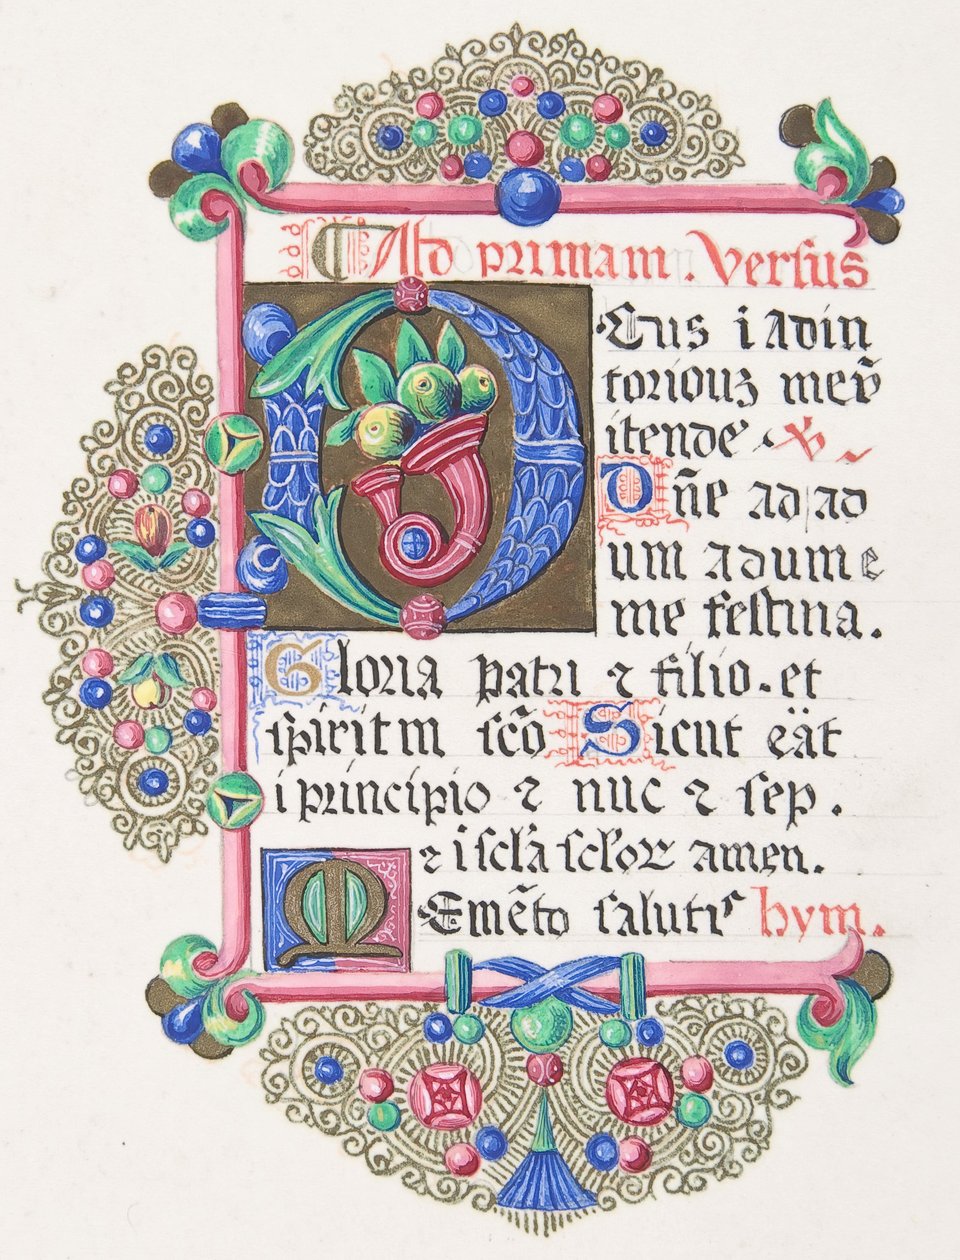 Ad primam. Versus
Deus i adiu
toriouz meū
itende
Dn̄e ad ad
um adume
me festina.
Gloria patri ⁊ filio. et
spiritm sc̄o Sicut eät
i principio ⁊ nuc ⁊ sep.
⁊ i sclā sclor amen.
Memẽto saluti hym.